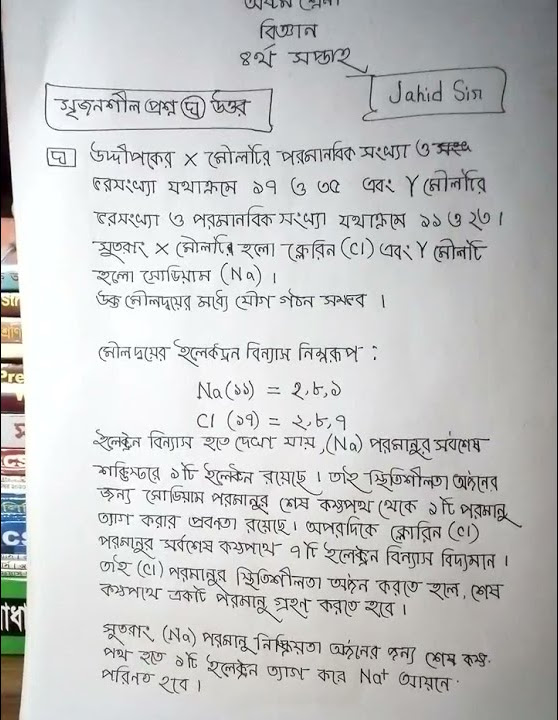 অষ্টম শ্রেণী
বিজ্ঞান
৪র্থ সপ্তাহ
সৃজনশীল প্রশ্ন ঘ উত্তর
Jahid Sir
ঘ উদ্দীপকের X মৌলটির পরমানবিক সংখ্যা ও
ভরসংখ্যা যথাক্রমে ১৭ ও ৩৫ এবং Y মৌলটির
ভরসংখ্যা ও পরমানবিক সংখ্যা যথাক্রমে ১১ ও ২৩।
সুতরাং X মৌলটি হলো ক্লোরিন (Cl) এবং Y মৌলটি
হলো সোডিয়াম (Na)।
উক্ত মৌলদ্বয়ের মধ্যে যৌগ গঠন সম্ভব।
মৌলদ্বয়ের ইলেকট্রন বিন্যাস নিম্নরূপ :
Na (১১) = ২,৮,১
Cl (১৭) = ২,৮,৭
ইলেকট্রন বিন্যাস হতে দেখা যায়, (Na) পরমানুর সর্বশেষ
শক্তিস্তরে ১টি ইলেকট্রন রয়েছে। তাই স্থিতিশীলতা অর্জনের
জন্য সোডিয়াম পরমানুর শেষ কক্ষপথ থেকে ১টি পরমানু
ত্যাগ করার প্রবনতা রয়েছে। অপরদিকে ক্লোরিন (Cl)
পরমানুর সর্বশেষ কক্ষপথে ৭টি ইলেকট্রন বিন্যাস বিদ্যমান।
তাই (Cl) পরমানুর স্থিতিশীলতা অর্জন করতে হলে, শেষ
কক্ষপথে একটি পরমানু গ্রহণ করতে হবে।
সুতরাং, (Na) পরমানু নিষ্ক্রিয়তা অর্জনের জন্য শেষ কক্ষ
পথ হতে ১টি ইলেকট্রন ত্যাগ করে Na⁺ আয়নে
পরিনত হবে।